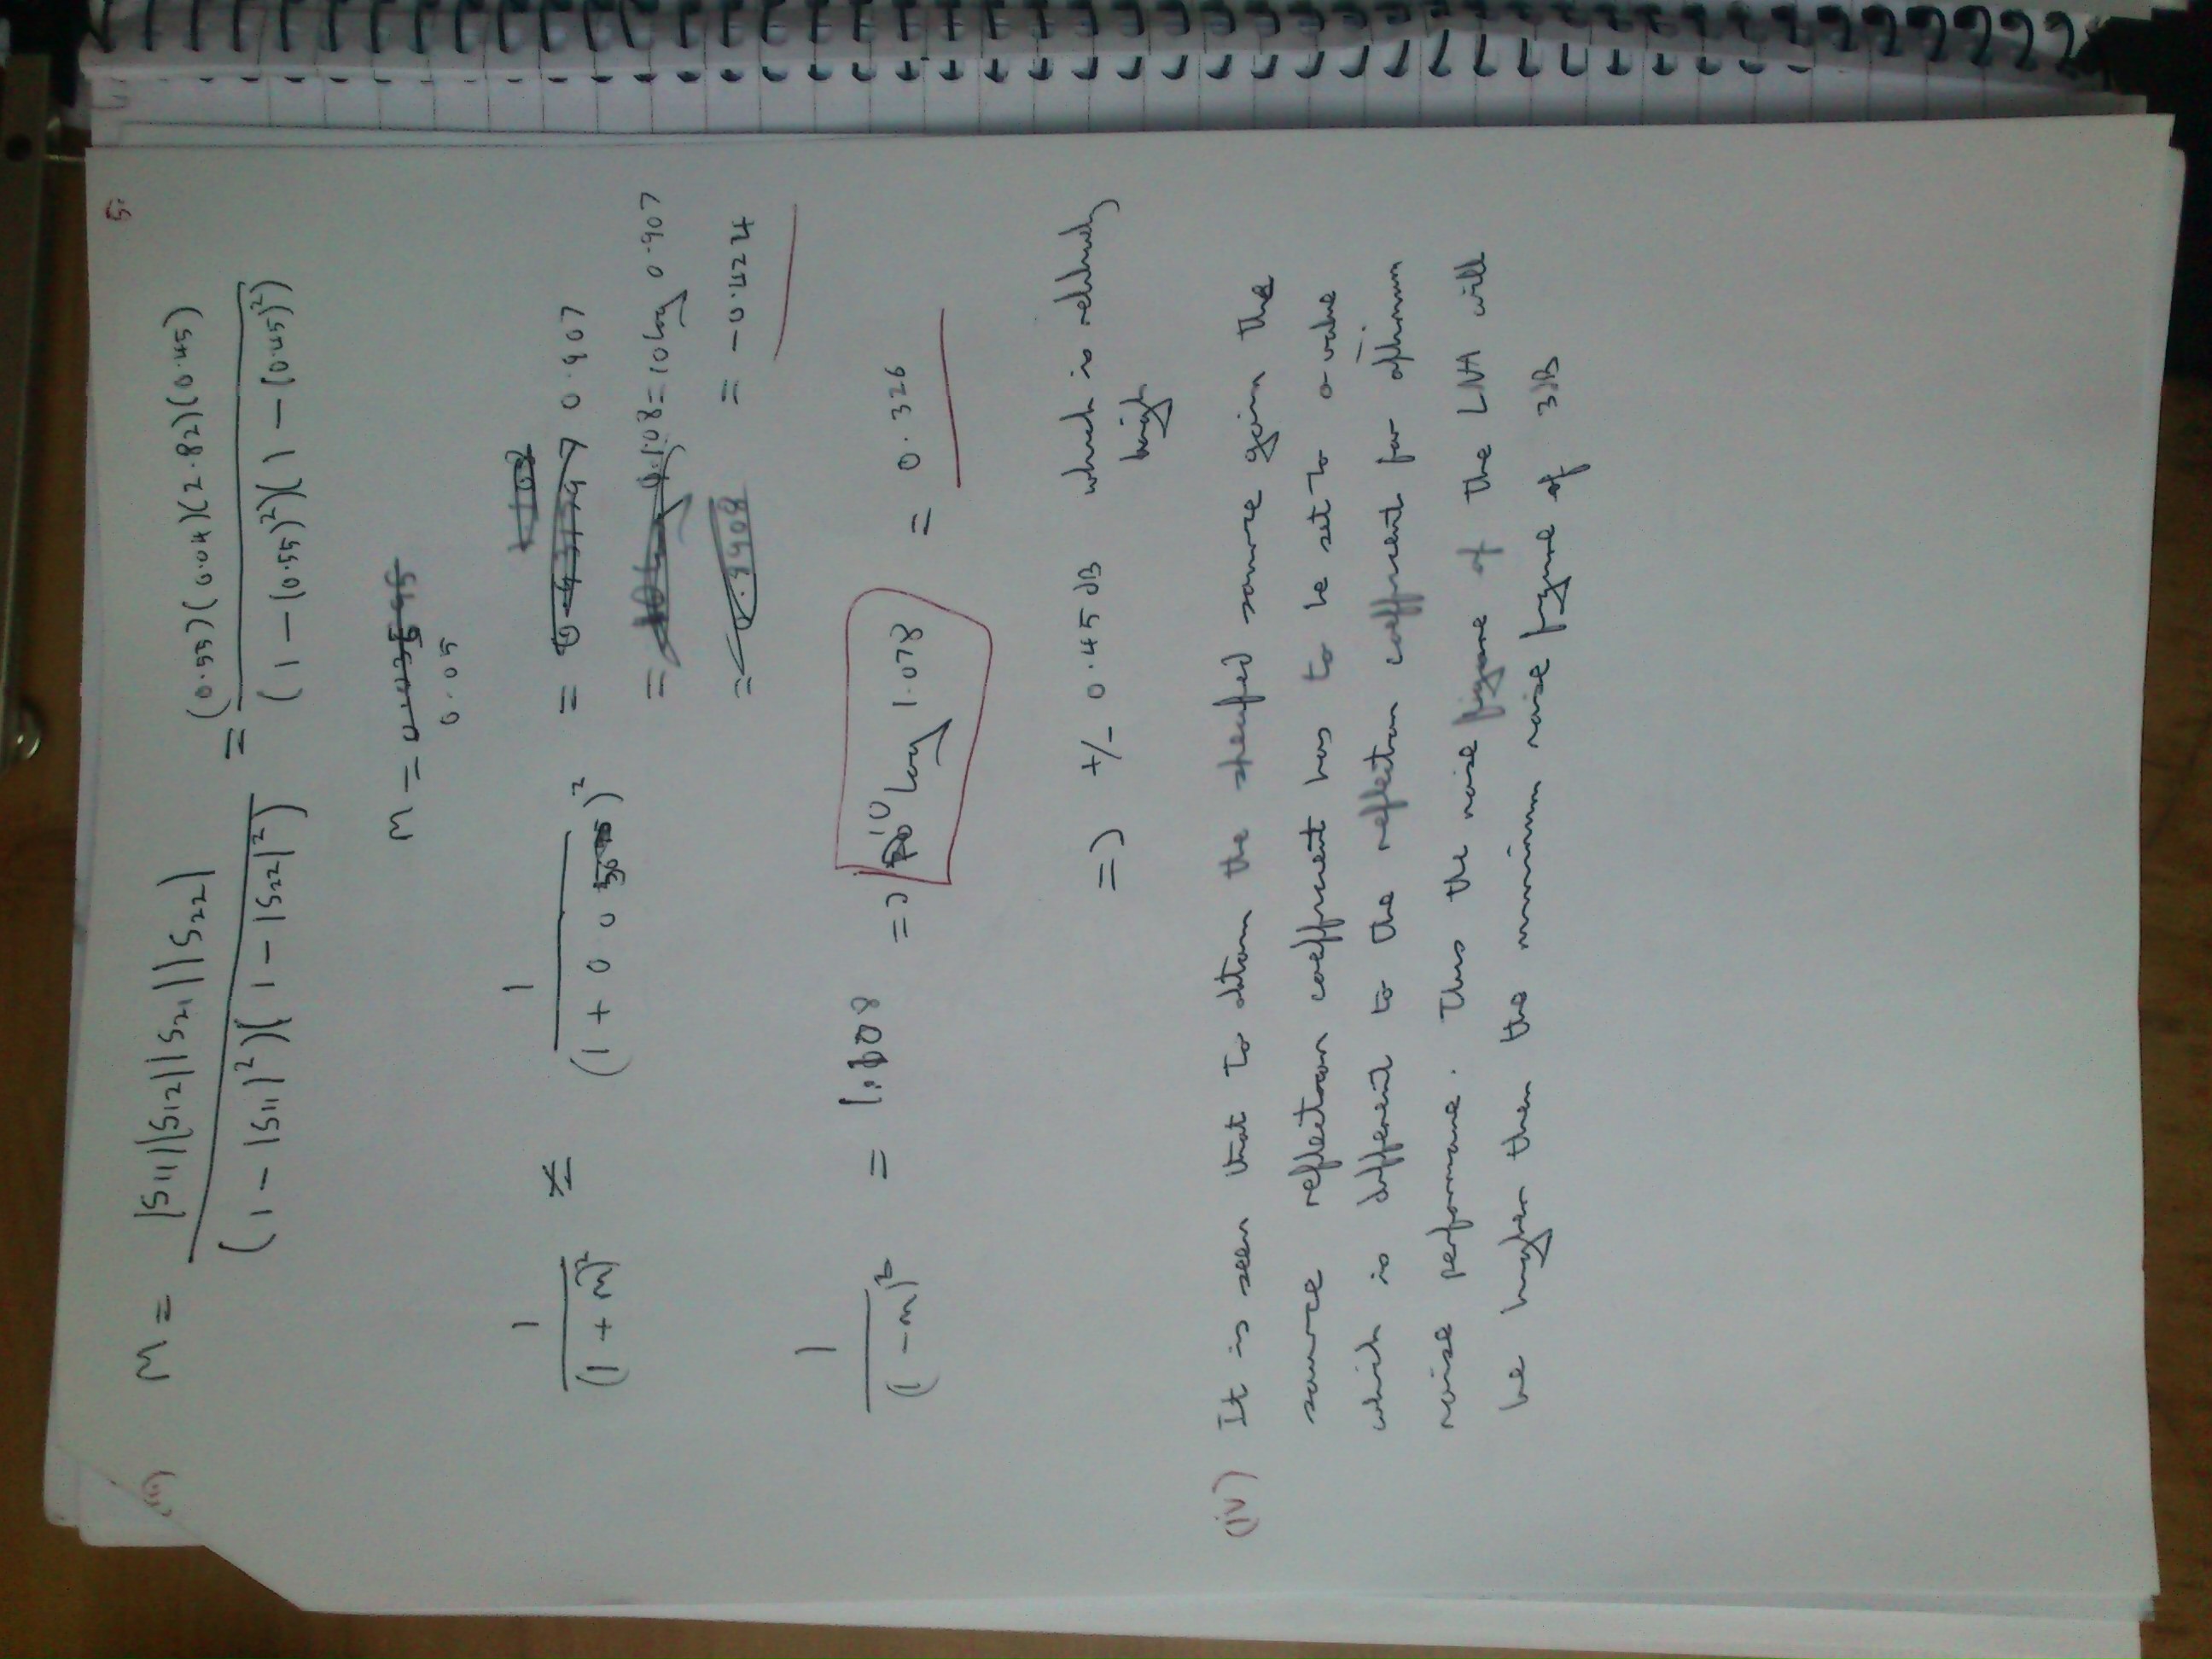 5.
(iii) M = |S11||S12||S21||S22| / (1 - |S11|²)(1 - |S22|²) = (0.55)(0.04)(2.82)(0.45) / (1 - (0.55)²)(1 - (0.45)²)
M =
0.05
1 / (1 + m)² ≤ 1 / (1 + 0.05)² = 0.907
= 10 log 0.907
= -0.424
1 / (1 - m)² = 1.108 => 10 log 1.078 = 0.326
=> +/- 0.45 dB which is relatively high
(iv) It is seen that to obtain the specified source gain the
source reflection coefficient has to be set to a value
which is different to the reflection coefficient for optimum
noise performance. Thus the noise figure of the LNA will
be higher then the minimum noise figure of 3dB